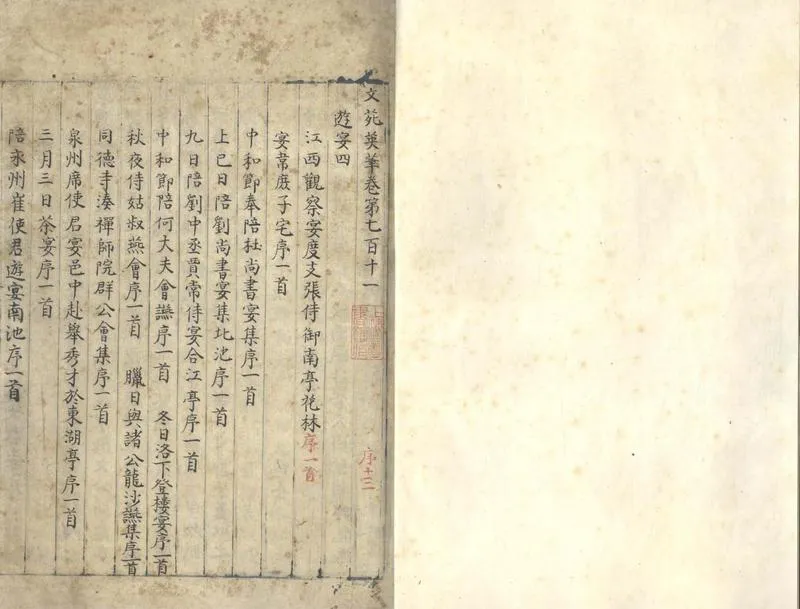 文苑英華卷第七百十一 序十三
遊宴四
江西觀察宴度支張侍御南亭花林序一首
宴韋庶子宅序一首
中和節奉陪杜尚書宴集序一首
上巳日陪劉尚書宴集北池序一首
九日陪劉中丞賈常侍宴合江亭序一首
中和節陪何大夫會讌序一首 冬日洛下登樓宴序一首
秋夜侍姑叔燕會序一首 臘日與諸公龍沙讌集序一首
同德寺湊禪師院群公會集序一首
泉州席使君宴邑中赴舉秀才於東湖亭序一首
三月三日茶宴序一首
陪永州崔使君遊宴南池序一首